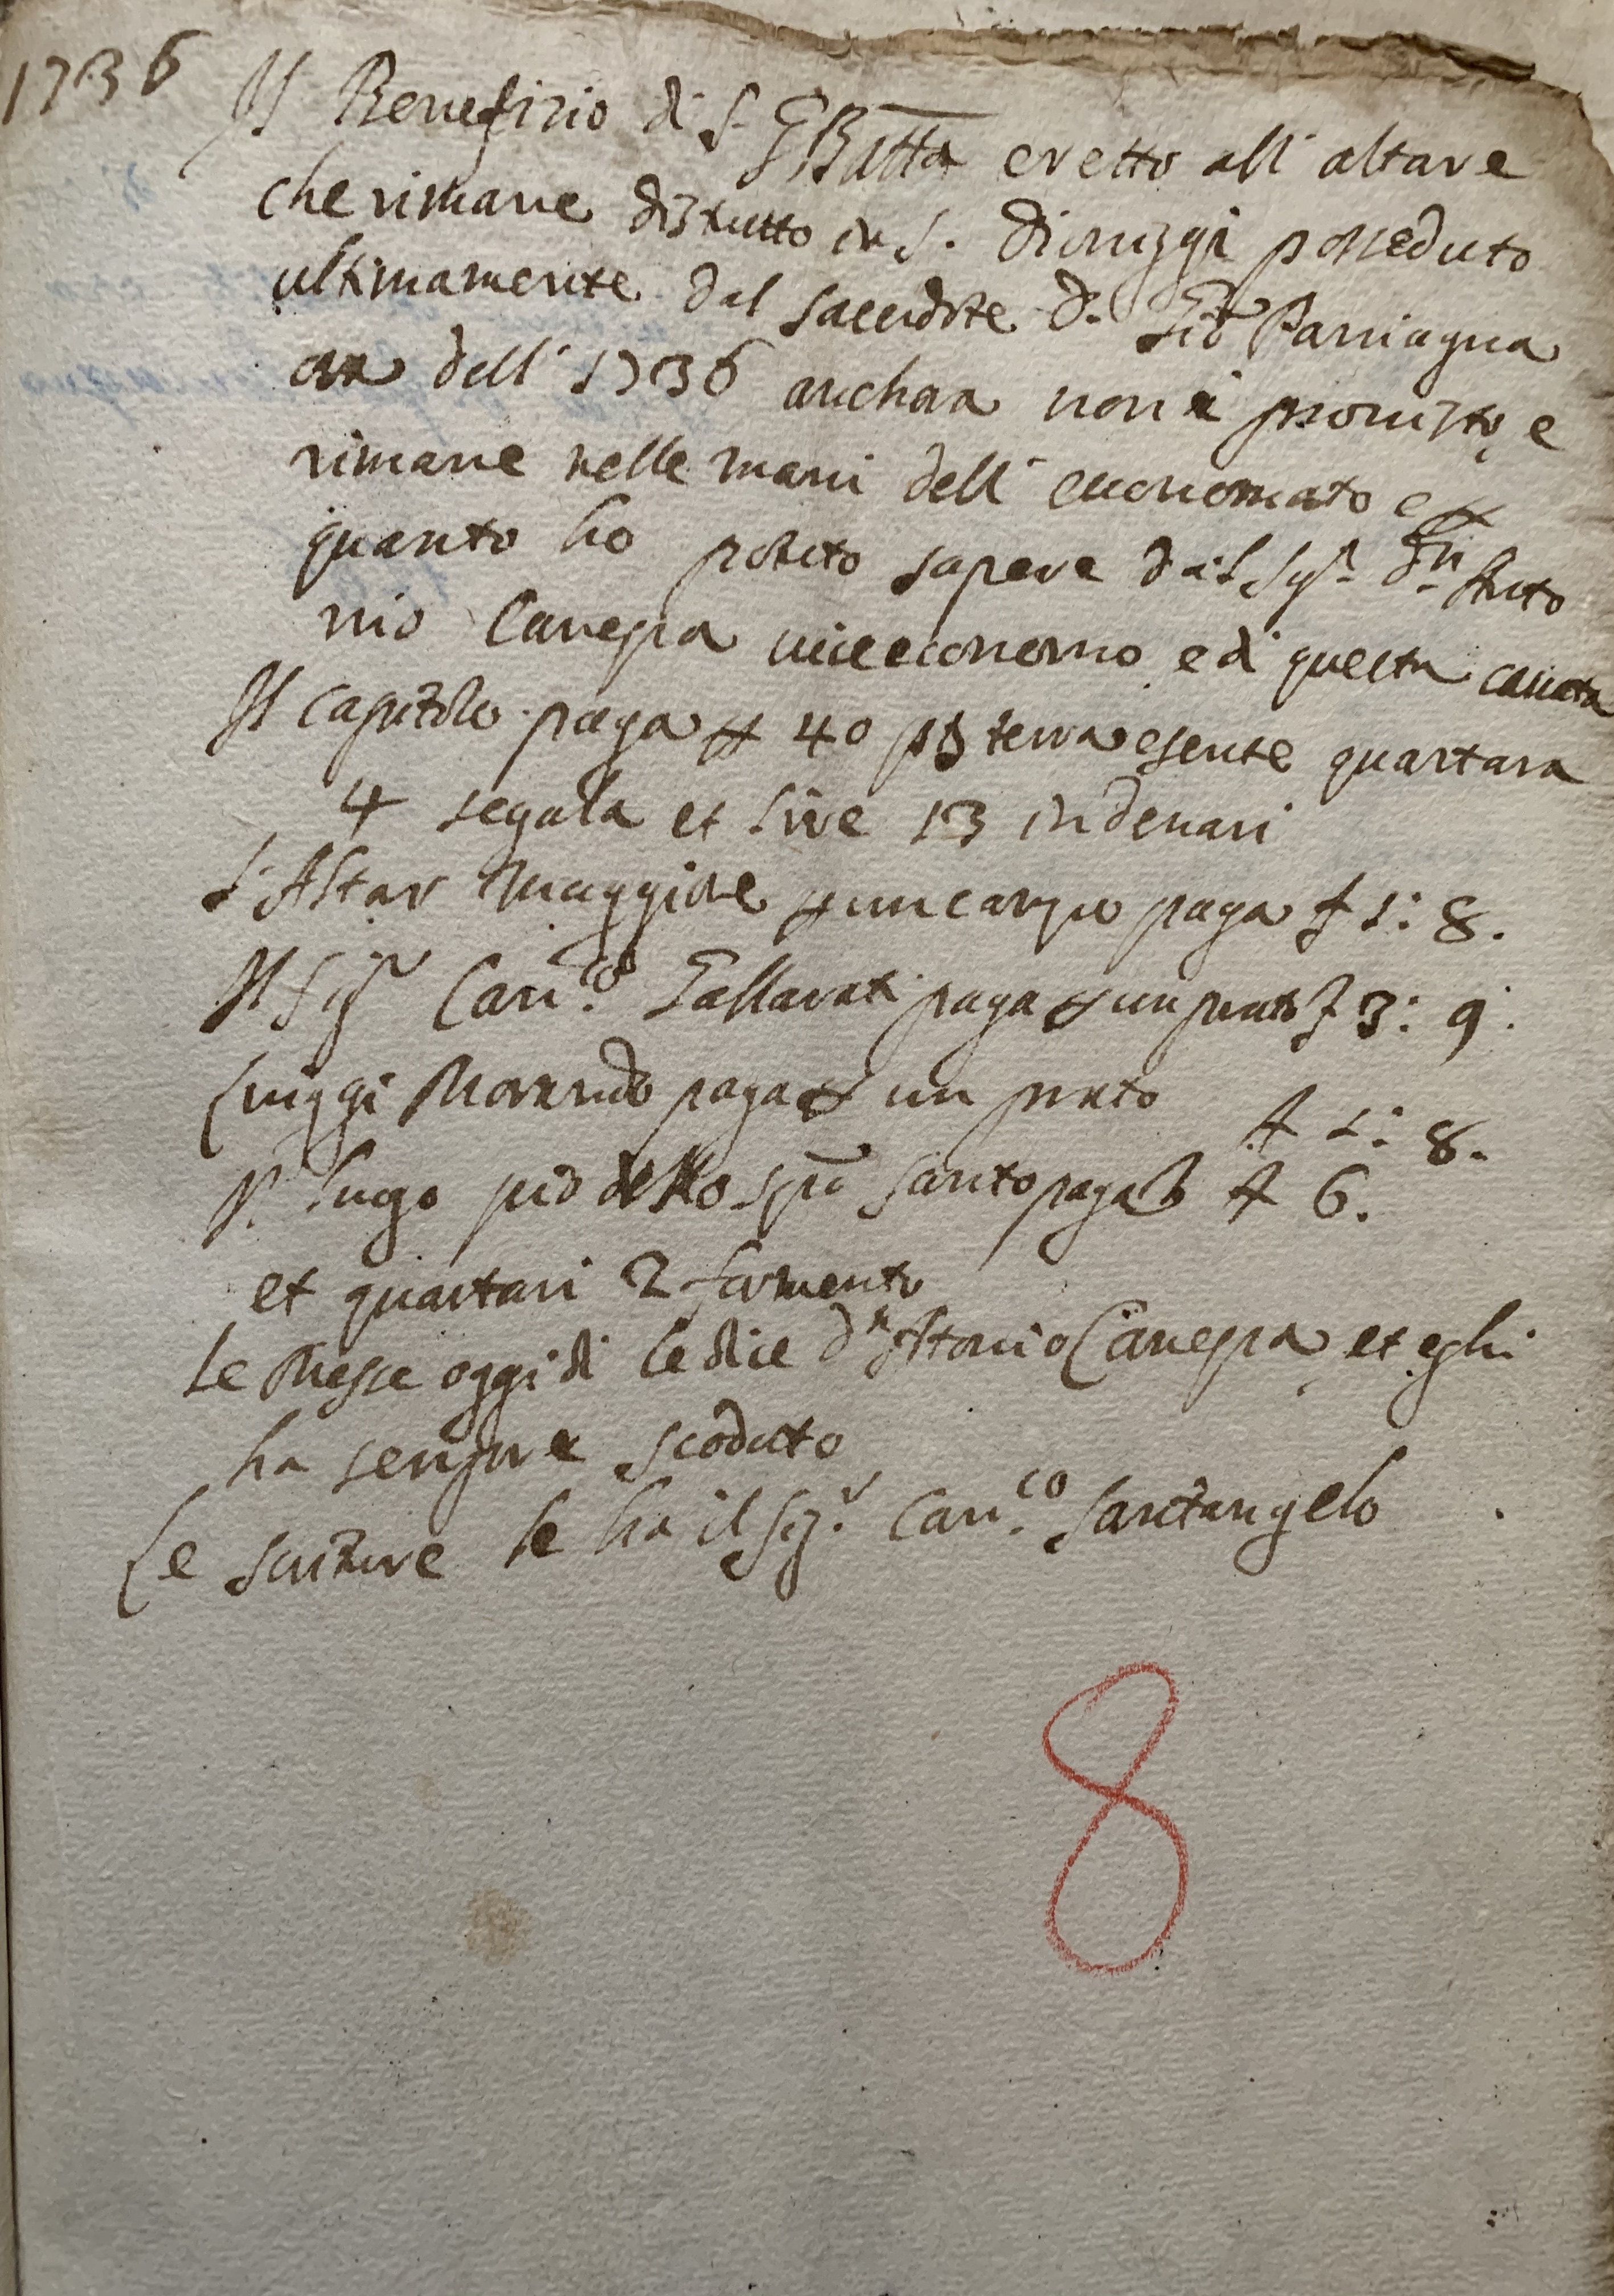 1736
Il Benefizio di S. GBatta eretto all'altare
che rimane distrutto in S. Dionizgi posseduto
ultimamente dal sacerdote D. Gio Parniagua
ora dell'1736 anchora non è provisto, e
rimane nelle mani dell'economato e p
quanto ho potuto sapere dal Sig.r D.n Anto
nio Canepa vice economo e di questa cavata
Il capitolo paga p 40 terra esente quartara
4 segala et live 13 in denari
L'Altar Maggiore p un canpo paga £ 1: 8.
Il Sig.r Can.co Gallarati paga p un prato £ 3: 9.
Luiggi Morando paga p un prato £ 1: 8.
Il lugo pio dello spū santo paga £ 6.
et quartari 2 formento
Le Messe oggi di le dice D.n Antonio Canepa, et egli
ha senpre scoduto
Le scriture le ha il Sig.r Can.co Santangelo
8